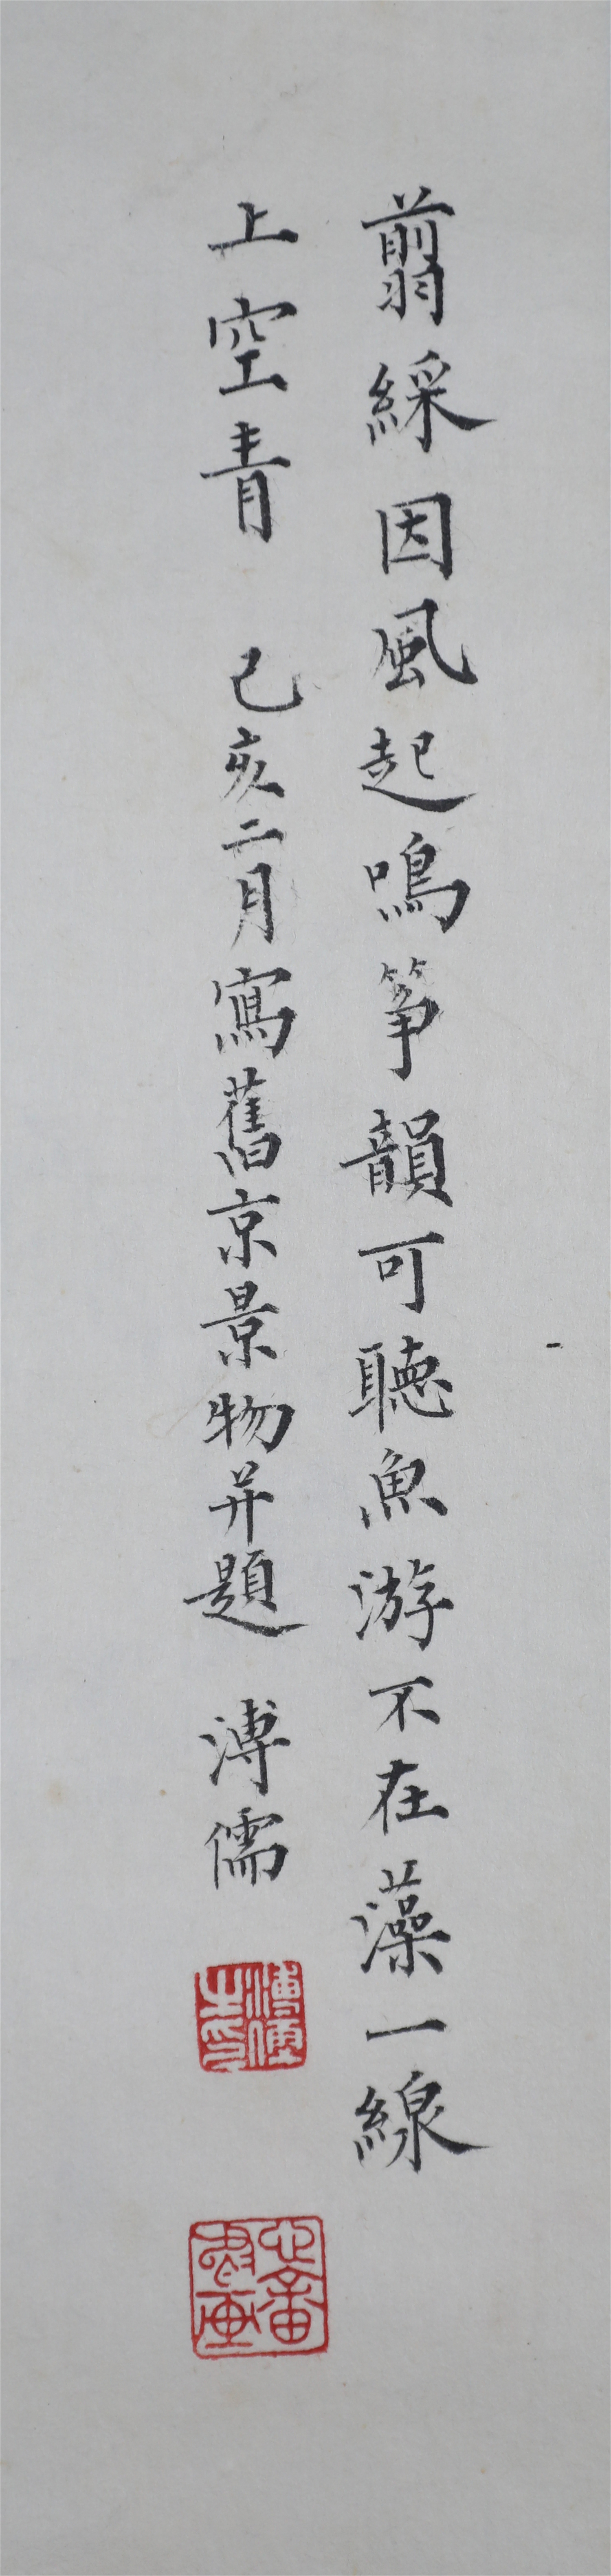 翦綵因風起鳴箏韻可聽魚游不在藻一線
上空青 己亥二月寫舊京景物并題 溥儒
溥儒之印
心畬書画